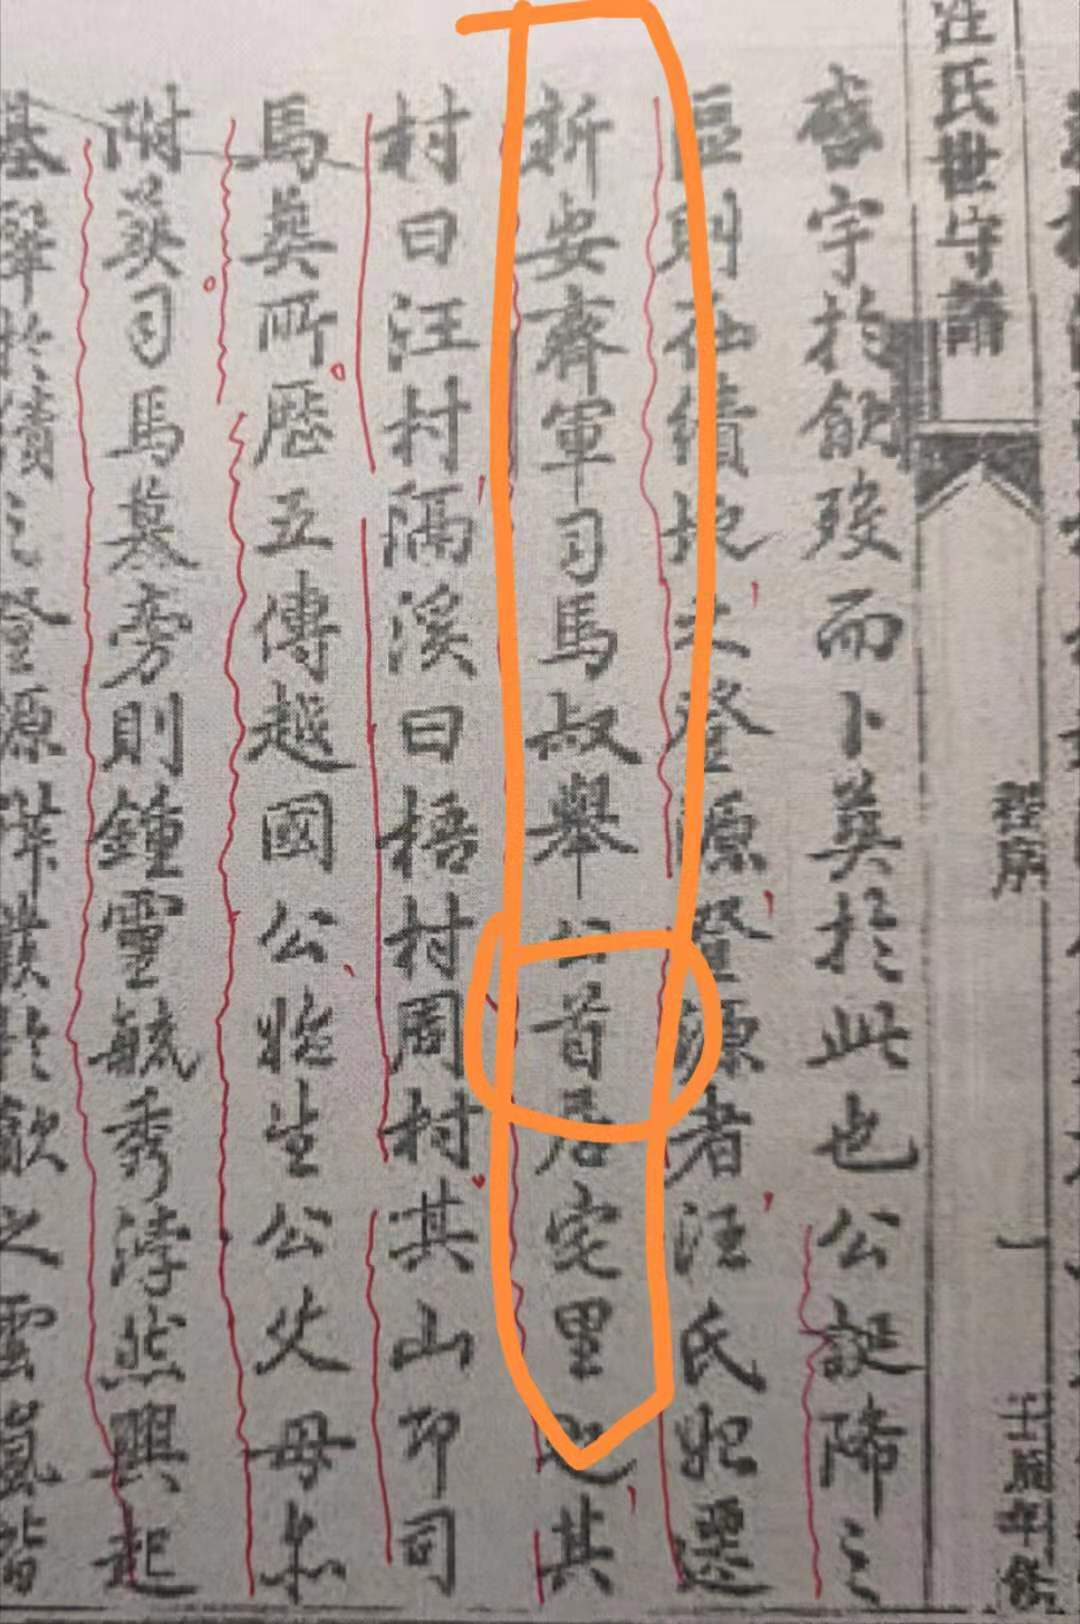 汪氏世守譜
程序
一
啓宇於飲歿而卜葵於此也公誕降之
區則在績地之登源登源者汪氏妃選
新安齊軍司馬叔舉公首居宅里也其
村曰汪村隔溪曰梧村周村其山即司
馬葵所歷五傳越國公始生公父母亦
附葵司馬墓旁則鍾靈毓秀浡然興起
基肇於績之登源業於歙之雲嵐皆